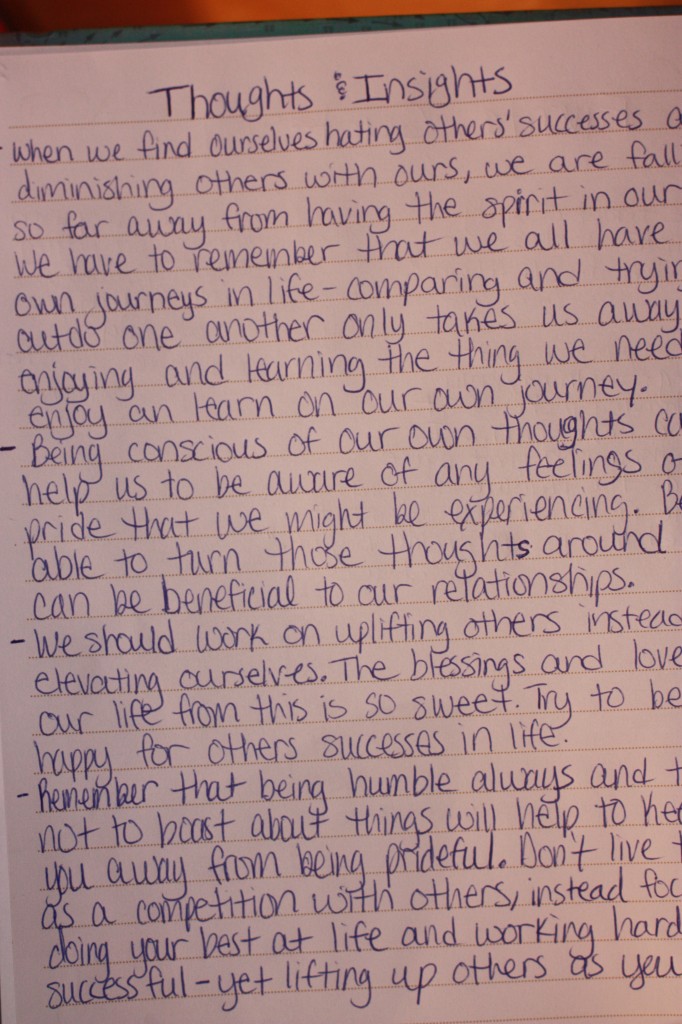 Thoughts & Insights
- when we find ourselves hating others' successes a
diminishing others with ours, we are fall
so far away from having the spirit in our
We have to remember that we all have
own journeys in life - comparing and tryin
outdo one another only takes us away
enjoying and learning the thing we need
enjoy an learn on our own journey.
- Being conscious of our own thoughts ca
help us to be aware of any feelings o
pride that we might be experiencing. Be
able to turn those thoughts around
can be beneficial to our relationships.
- We should work on uplifting others instead
elevating ourselves. The blessings and love
our life from this is so sweet. Try to be
happy for others successes in life.
- Remember that being humble always and t
not to boast about things will help to kee
you away from being prideful. Don't live t
as a competition with others, instead foc
doing your best at life and working hard
successful - yet lifting up others as you